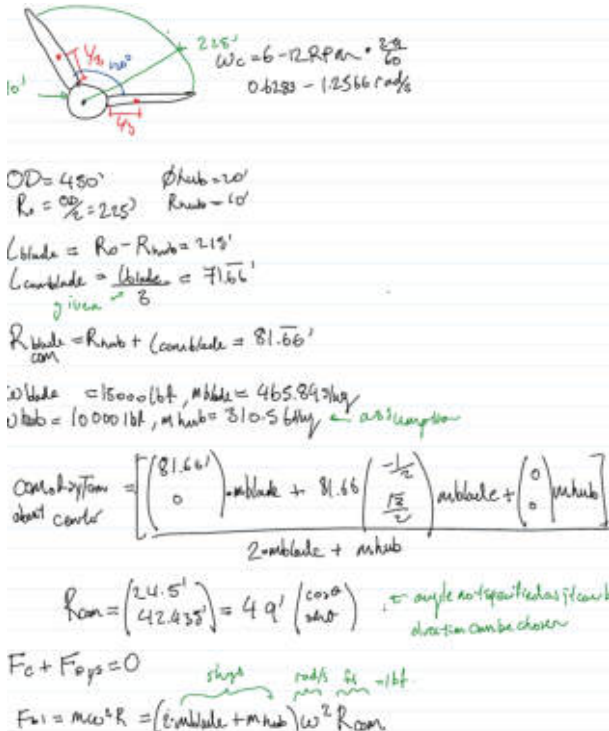 225'
ωc = 6 - 12 RPM • 2π/60
0.6283 - 1.2566 rad/s
120°
10'
OD = 450' Øhub = 20'
Ro = OD/2 = 225' Rhub = 10'
Lblade = Ro - Rhub = 215'
Lcomblade = Lblade/3 = 71.66'
given
Rblade com = Rhub + Lcomblade = 81.66'
ωblade = 15000 lbf, mblade = 465.84 slug
ωhub = 10000 lbf, mhub = 310.56 slug ← assumption
com of system about center = [(81.66' 0) • mblade + 81.66 (-1/2 √3/2) mblade + (0 0) mhub]
2•mblade + mhub
Rcom = (24.5' 42.435') = 49' (cosθ sinθ) ← angle not specified as
direction can be chosen
Fc + Fsys = 0
slugs rad/s ft =lbf
= mω²R = (2•mblade + mhub) ω² Rcom